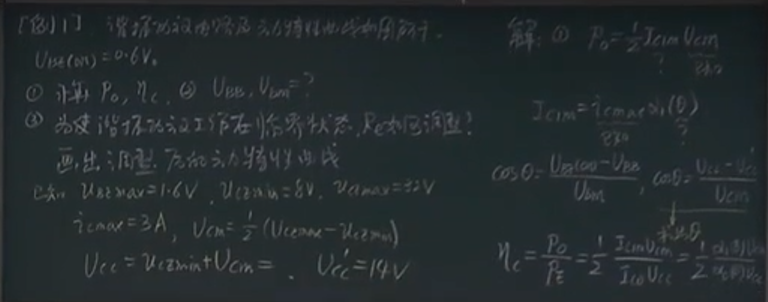 [例1] 谐振功放电路及动力特性曲线如图所示.
U_BE(on)=0.6V。
① 计算 P_o, η_c, ② U_BB, U_bm=?
③ 为使谐振功放工作在临界状态, R_e如何调整?
画出调整后的动力特性曲线
已知: u_BEmax=1.6V, u_CEmin=8V, u_CEmax=32V
i_cmax=3A, U_cm=½(u_CEmax-u_CEmin)
U_cc=u_CEmin+U_cm= . U'_cc=14V
解: ① P_o=½ I_c1m U_cm
? 已知
I_c1m=i_cmax α_1(θ)
已知 ?
cosθ=(U_BE(on)-U_BB)/U_bm, cosθ=(U_cc-U'_cc)/U_cm
求出θ
η_c=P_o/P_E=½ (I_c1m U_cm)/(I_c0 U_cc)=½ (α_1(θ)U_cm)/(α_0(θ)U_cc)